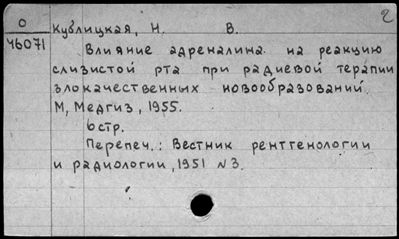 2
О
46071
Кублицкая, Н. В.
Влияние адреналина на реакцию
слизистой рта при радиевой терапии
злокачественных новообразований.
М, Медгиз, 1955.
6 стр.
Перепеч.: Вестник рентгенологии
и радиологии, 1951 №3.